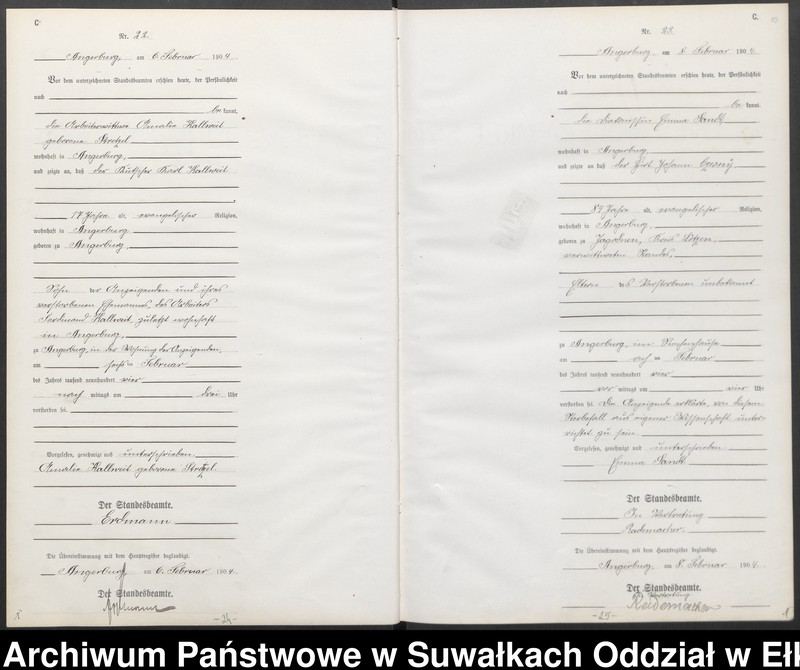 C
Nr. 22
Angerburg, am 6. Februar 1904
Vor dem unterzeichneten Standesbeamten erschien heute, der Persönlichkeit
nach
be kannt,
die Arbeiterwittwe Amalia Kallweit
geborene
wohnhaft in Angerburg,
und zeigte an, daß der Kutscher Karl Kallweit
17 Jahre alt, evangelischer Religion,
wohnhaft in Angerburg
geboren zu Angerburg,
Sohn der Anzeigenden und ihres
verstorbenen Ehemannes, des Arbeiters
Ferdinand Kallweit, zuletzt wohnhaft
in Angerburg,
zu Angerburg, in der Wohnung der Anzeigenden,
am sechs ten Februar
des Jahres tausend neunhundert vier
nach mittags um drei Uhr
verstorben sei.
Vorgelesen, genehmigt und unterschrieben
Amalia Kallweit geborene
Der Standesbeamte.
Erdmann
Die Übereinstimmung mit dem Hauptregister beglaubigt.
Angerburg am 6. Februar 1904.
Der Standesbeamte.
Erdmann
-24-
C.
Nr. 23
Angerburg, am 8. Februar 1904
Vor dem unterzeichneten Standesbeamten erschien heute, der Persönlichkeit
nach
be kannt,
die Diakonissin Emma
wohnhaft in Angerburg
und zeigte an, daß der Hirt Johann
Jahre alt, evangelischer Religion,
wohnhaft in Angerburg,
geboren zu Kreis Lötzen,
verwittweten Standes,
Eltern des Verstorbenen unbekannt
zu Angerburg, im
am acht ten Februar
des Jahres tausend neunhundert vier
vor mittags um vier Uhr
verstorben sei. Die Anzeigende erklärte, von diesem
Sterbefall aus eigener Wissenschaft unter-
richtet zu sein
Vorgelesen, genehmigt und unterschrieben
Emma
Der Standesbeamte.
In Vertretung
Rademacher
Die Übereinstimmung mit dem Hauptregister beglaubigt.
Angerburg, am 8. Februar 1904.
Der Standesbeamte.
In Vertretung
Rademacher
-25-
Archiwum Państwowe w Suwałkach Oddział w Eł